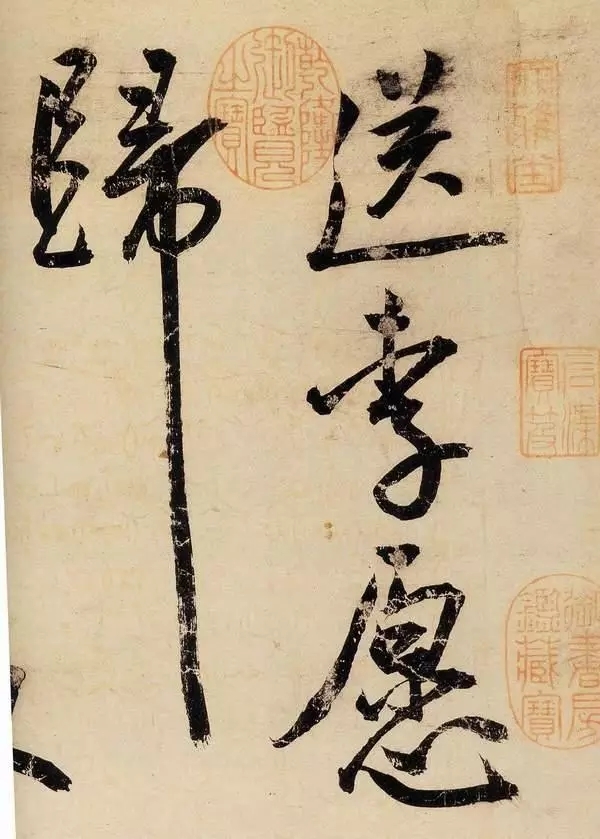 送李愿
歸
乾隆御覽之寶
石渠寶笈
御書房鑑藏寶